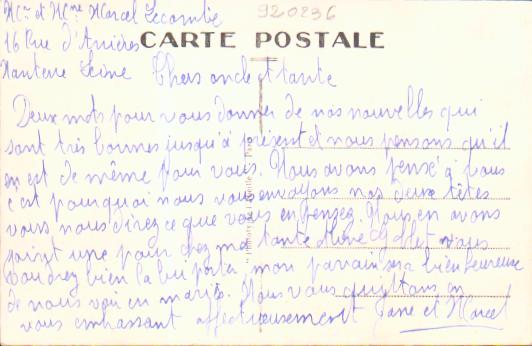 Mr et Mme Marcel Lecombe
920236
16 Rue d'Anières
CARTE POSTALE
Nanterre Seine Chers oncle et tante
Deux mots pour vous donner de nos nouvelles qui
sont très bonnes jusqu'à présent et nous pensons qu'il
en est de même pour vous. Nous avons pensé à vous
c'est pourquoi nous vous envoyons nos deux têtes
vous nous direz ce que vous en pensez. Nous en avons
joint une pour chez ma tante vous
voudrez bien la lui porter mon parrain sera bien heureux
de nous voir en mariés. Nous vous quittons en
vous embrassant affectueusement Jane et Marcel